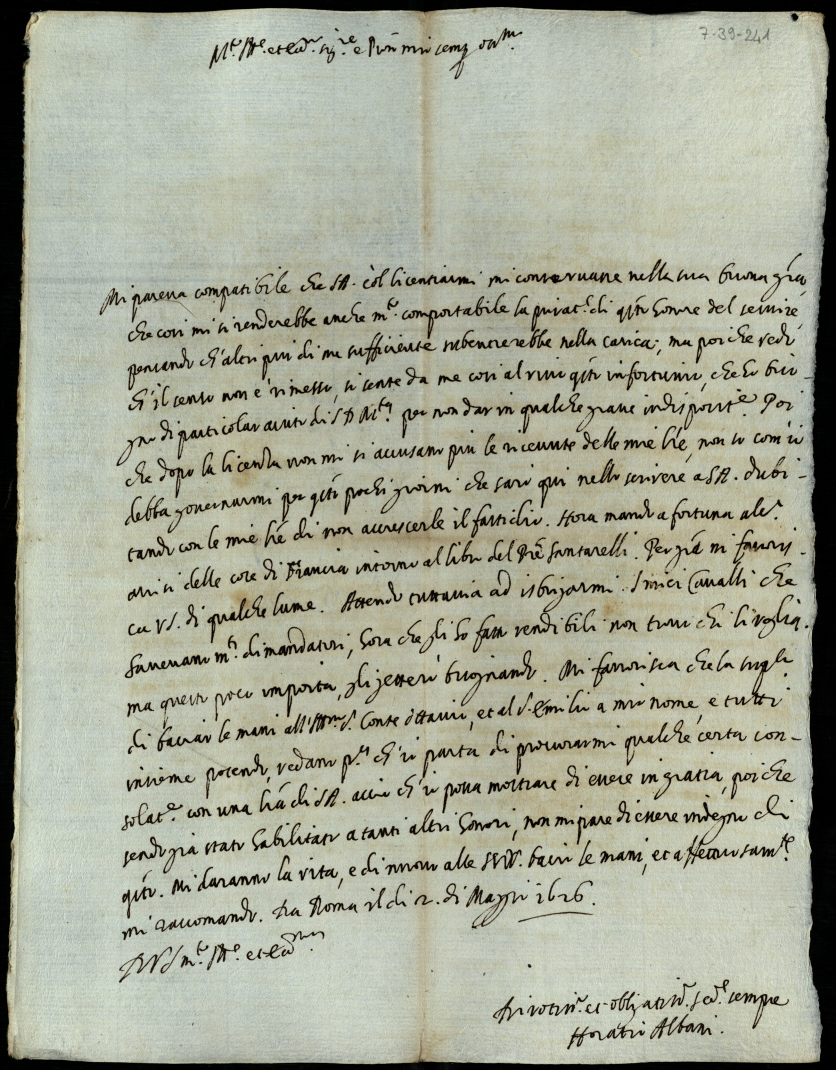 7-39-241
M.to Ill.re et ecc.mo sig.re e P.ron mio semp. oss.mo
Mi pareva compatibile che SA. col licentiarmi mi conservasse nella sua buona gra,
che così mi si renderebbe anche m.to comportabile la privat.e di q̃sto honore del servire
pensando ch'altri più di me sufficiente subentrerebbe nella carica; ma poiche vedo
ch'il censo non è rimesso, si sente da me così al vivo q̃sto infortunio, che ho biso-
gno di particolar aiuto di S D M.tà per non dar in qualche grave indisposit.e Poi
che dopo la licenza non mi si accusano più le ricevute delle mie lre, non so com'io
debba governarmi per q̃sti pochi giorni che sarò qui nello scrivere a SA. dubi-
tando con le mie lre di non accrescerle il fastidio. Hora mando a fortuna alc.i
avisi delle cose di Francia intorno al libro del Pre Santarelli. Per gra mi favoris-
ca VS. di qualche lume. Attendo tuttavia ad isbrigarmi. I miei Cavalli che
havevano m.ti dimandatori, hora che gli ho fatti vendibili non trovo chi li voglia.
ma questo poco importa, gli jetterò bisognando. Mi favorisca che la supl.co
di baciar le mani all'Ill.mo S. Conte Ottavio, et al S. Emilio a mio nome, e tutti
insieme potendo, vedano p.a ch'io parta di procurarmi qualche certa con-
solat.e con una lra di SA. acciò ch'io possa mostrare di essere in gratia, poiche
sendo già stato habilitato a tanti altri honori, non mi pare di essere indegno di
q̃sto. Mi daranno la vita, e di nuovo alle SSVV. bacio le mani, et affettuosam.te
mi raccomando. Da Roma il dì 2. di Maggio 1626.
Di VS m.to Ill.re et ecc.ma
Divotiss.o et obligatiss.o se.re sempre
Horatio Albani.